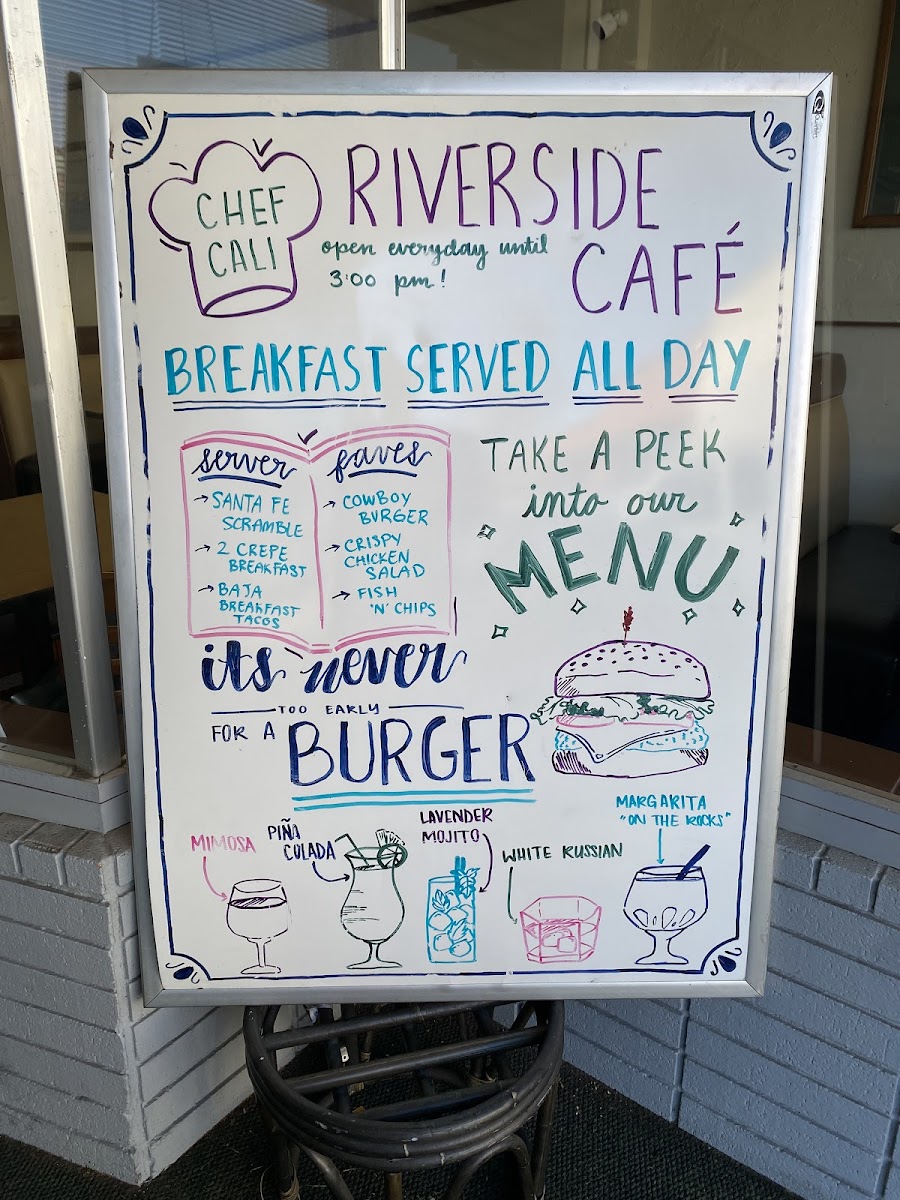 CHEF
CALI
RIVERSIDE
CAFÉ
open everyday until
3:00 pm!
BREAKFAST SERVED ALL DAY
server faves
→ SANTA FE
SCRAMBLE
→ 2 CREPE
BREAKFAST
→ BAJA
BREAKFAST
TACOS
→ COWBOY
BURGER
→ CRISPY
CHICKEN
SALAD
→ FISH
'N' CHIPS
TAKE A PEEK
into our
MENU
its never
TOO EARLY
FOR A BURGER
MIMOSA
PIÑA
COLADA
LAVENDER
MOJITO
WHITE RUSSIAN
MARGARITA
"ON THE ROCKS"